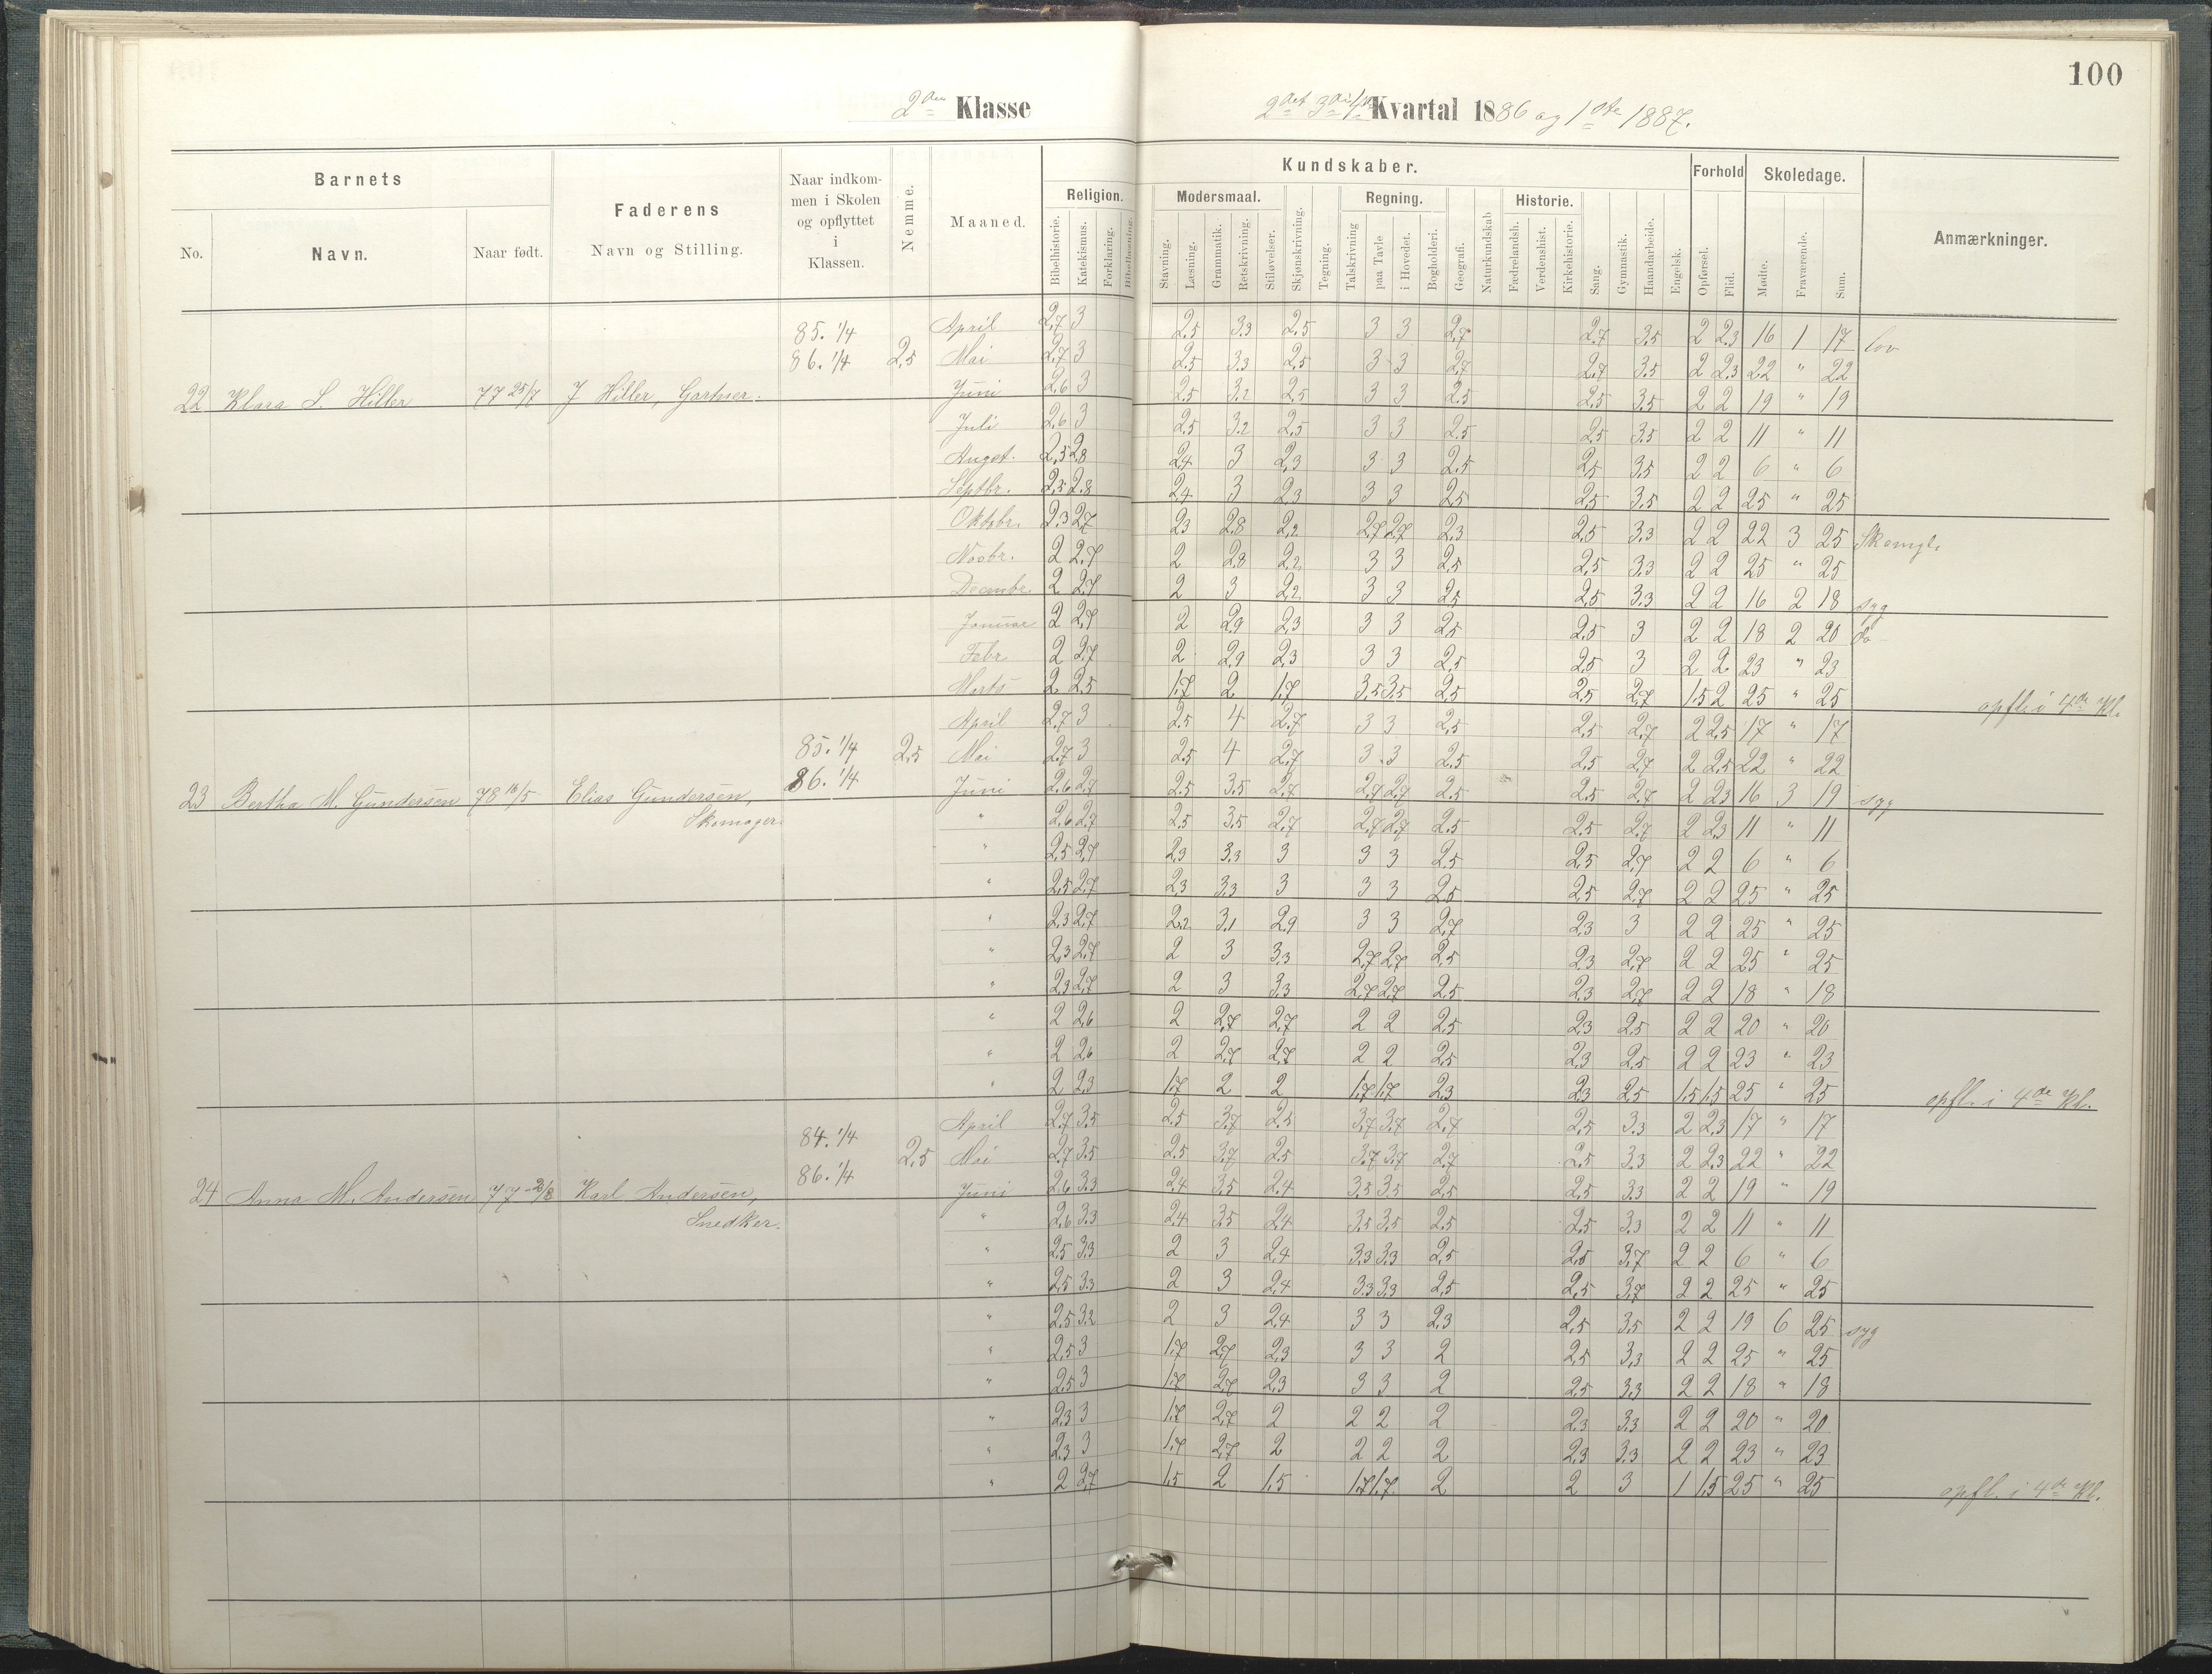 100
2den Klasse
2det 3die 4de Kvartal 1886 og 1ste 1887.
Barnets
Faderens
Navn og Stilling.
Naar indkom-
men i Skolen
og opflyttet
i
Klassen.
Nemme.
Maaned.
Religion.
Kundskaber.
Modersmaal.
Regning.
Historie.
Forhold
Skoledage.
Anmærkninger.
No.
Navn.
Naar født.
Bibelhistorie.
Katekismus.
Forklaring.
Bibellæsning.
Stavning.
Læsning.
Grammatik.
Retskrivning.
Stiløvelser.
Skjønskrivning.
Tegning.
Talskrivning
paa Tavle
i Hovedet.
Bogholderi.
Geografi.
Naturkundskab
Fædrelandsh.
Verdenshist.
Kirkehistorie.
Sang.
Gymnastik.
Haandarbeide.
Engelsk.
Opførsel.
Flid.
Mødte.
Fraværende.
Sum.
85. 1/4 April 2,7 3 2,5 3,3 2,5 3 3 2,7 2,7 3,5 2 2,3 16 1 17 lov
86. 1/4 2,5 Mai 2,7 3 2,5 3,3 2,5 3 3 2,7 2,7 3,5 2 2,3 22 " 22
22 Klara S. Hiller 77 25/7 J Hiller, Gartner. Juni 2,6 3 2,5 3,2 2,5 3 3 2,5 2,5 3,5 2 2 19 " 19
Juli 2,6 3 2,5 3,2 2,5 3 3 2,5 2,5 3,5 2 2 11 " 11
August. 2,5 2,8 2,4 3 2,3 3 3 2,5 2,5 3,5 2 2 6 " 6
Septbr. 2,5 2,8 2,4 3 2,3 3 3 2,5 2,5 3,5 2 2 25 " 25
Oktobr. 2,3 2,7 2,3 2,8 2,2 2,7 2,7 2,3 2,5 3,3 2 2 22 3 25 Skomgl.
Novbr. 2 2,7 2 2,8 2,2 3 3 2,5 2,5 3,3 2 2 25 " 25
Decmbr. 2 2,7 2 3 2,2 3 3 2,5 2,5 3,3 2 2 16 2 18 syg
Januar 2 2,7 2 2,9 2,3 3 3 2,5 2,5 3 2 2 18 2 20 do
Febr 2 2,7 2 2,9 2,3 3 3 2,5 2,5 3 2 2 23 " 23
Marts 2 2,5 1,7 2 1,7 3,5 3,5 2,5 2,5 2,7 1,5 2 25 " 25 opfl. i 4de Kl.
April 2,7 3 2,5 4 2,7 3 3 2,5 2,5 2,7 2 2,5 17 " 17
85. 1/4 2,5 Mai 2,7 3 2,5 4 2,7 3 3 2,5 2,5 2,7 2 2,5 22 " 22
86. 1/4
23 Bertha M. Gundersen 78 16/5 Elias Gundersen, Juni 2,6 2,7 2,5 3,5 2,7 2,7 2,7 2,5 2,5 2,7 2 2,3 16 3 19 syg
Skomager. " 2,6 2,7 2,5 3,5 2,7 2,7 2,7 2,5 2,5 2,7 2 2,3 11 " 11
" 2,5 2,7 2,3 3,3 3 3 3 2,5 2,5 2,7 2 2 6 " 6
" 2,5 2,7 2,3 3,3 3 3 3 2,5 2,5 2,7 2 2 25 " 25
" 2,3 2,7 2,2 3,1 2,9 3 3 2,7 2,3 3 2 2 25 " 25
" 2,3 2,7 2 3 3,3 2,7 2,7 2,5 2,3 2,7 2 2 25 " 25
" 2,3 2,7 2 3 3,3 2,7 2,7 2,5 2,3 2,7 2 2 18 " 18
" 2 2,6 2 2,7 2,7 2 2 2,5 2,3 2,5 2 2 20 " 20
" 2 2,6 2 2,7 2,7 2 2 2,5 2,3 2,5 2 2 23 " 23
" 2 2,3 1,7 2 2 1,7 1,7 2,3 2,3 2,5 1,5 1,5 25 " 25 opfl. i 4de Kl.
April 2,7 3,5 2,5 3,7 2,5 3,7 3,7 2,7 2,5 3,3 2 2,3 17 " 17
84. 1/4 2,5 Mai 2,7 3,5 2,5 3,7 2,5 3,7 3,7 2,7 2,5 3,3 2 2,3 22 " 22
86. 1/4
24 Anna M. Andersen 77 Karl Andersen, Juni 2,6 3,3 2,4 3,5 2,4 3,5 3,5 2,5 2,5 3,3 2 2 19 " 19
Snedker. " 2,6 3,3 2,4 3,5 2,4 3,5 3,5 2,5 2,5 3,3 2 2 11 " 11
" 2,5 3,3 2 3 2,4 3,3 3,3 2,5 2,5 3,7 2 2 6 " 6
" 2,5 3,3 2 3 2,4 3,3 3,3 2,5 2,5 3,7 2 2 25 " 25
" 2,5 3,2 2 3 2,4 3 3 2,3 2,5 3,5 2 2 19 6 25 syg
" 2,5 3 1,7 2,7 2,3 3 3 2 2,5 3,3 2 2 25 " 25
" 2,5 3 1,7 2,7 2,3 3 3 2 2,5 3,3 2 2 18 " 18
" 2,3 3 1,7 2,7 2 2 2 2 2,3 3,3 2 2 20 " 20
" 2,3 3 1,7 2,7 2 2 2 2 2,3 3,3 2 2 23 " 23
" 2 2,7 1,5 2 1,5 1,7 1,7 2 2 3 1 1,5 25 " 25 opfl. i 4de Kl.